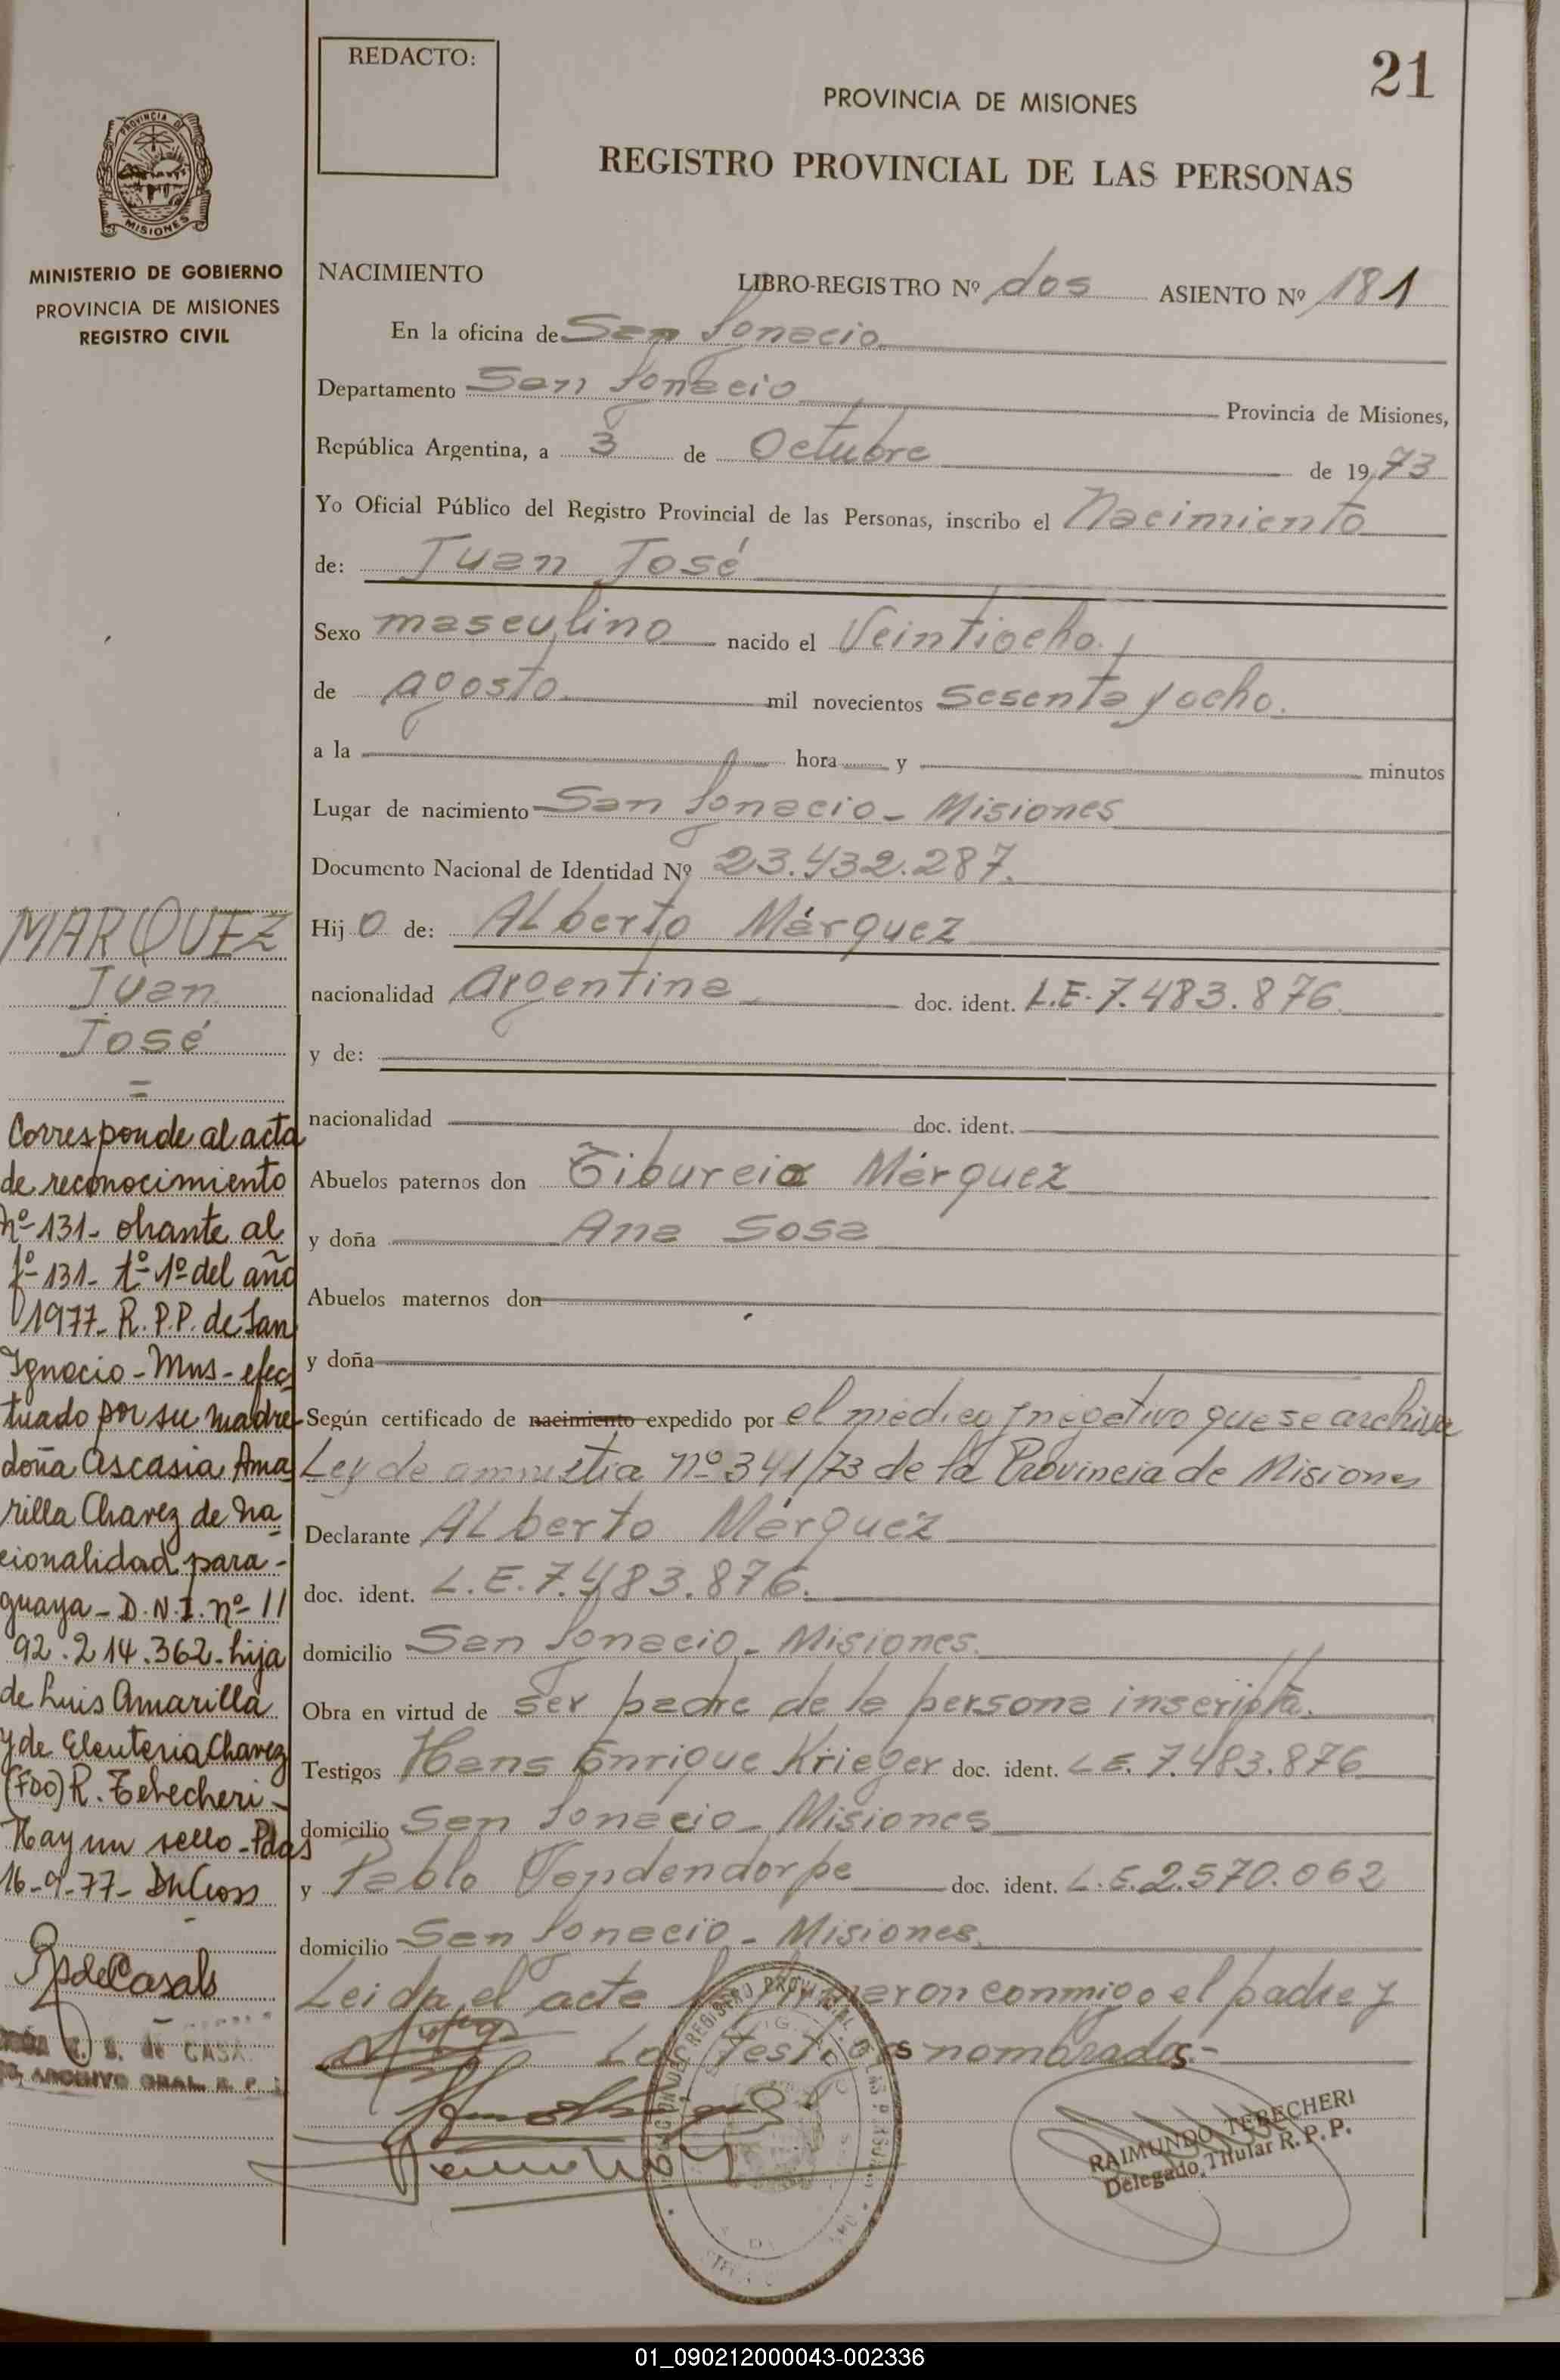 REDACTO:
21
PROVINCIA DE MISIONES
REGISTRO PROVINCIAL DE LAS PERSONAS
PROVINCIA DE
MISIONES
MINISTERIO DE GOBIERNO
PROVINCIA DE MISIONES
REGISTRO CIVIL
NACIMIENTO LIBRO-REGISTRO Nº dos ASIENTO Nº 181
En la oficina de San Ignacio
Departamento San Ignacio Provincia de Misiones,
República Argentina, a 3 de Octubre de 1973
Yo Oficial Público del Registro Provincial de las Personas, inscribo el Nacimiento
de: Juan José
Sexo masculino nacido el Veintiocho
de agosto mil novecientos sesenta y ocho.
a la hora y minutos
Lugar de nacimiento San Ignacio - Misiones
Documento Nacional de Identidad Nº 23.432.287.
Hijo de: Alberto Márquez
nacionalidad argentina doc. ident. L.E. 7.483.876.
y de:
nacionalidad doc. ident.
Abuelos paternos don Márquez
y doña Ana Sosa
Abuelos maternos don
y doña
Según certificado de nacimiento expedido por el médico y negativo que se archiva
Ley de amnistia nº 341/73 de la Provincia de Misiones
Declarante Alberto Márquez
doc. ident. L.E. 7.483.876.
domicilio San Ignacio - Misiones.
Obra en virtud de ser padre de la persona inscripta.
Testigos Hans Enrique Krieger doc. ident. L.E. 7.483.876
domicilio San Ignacio - Misiones
y Pablo doc. ident. L.E. 2.570.062
domicilio San Ignacio - Misiones.
Leida el acta la firmaron conmigo el padre y
Los testigos nombrados.-
RAIMUNDO TEBECHERI
Delegado Titular R. P. P.
MARQUEZ
Juan
José
=
Corresponde al acta
de reconocimiento
nº 131- obrante al
fº 131- tº 1º del año
1977- R.P.P. de San
Ignacio - Mns - efec
tuado por su madre
doña Ascasia Ama
rilla Chavez de na
cionalidad para-
guaya - D.N.I. nº 11
92.214.362- hija
de Luis Amarilla
y de Eleuteria Chavez
(FDO) R. Tebecheri -
Hay un sello - Pdas
16-9-77-
de Casals
ARCHIVO GRAL. R. P.
01_090212000043-002336